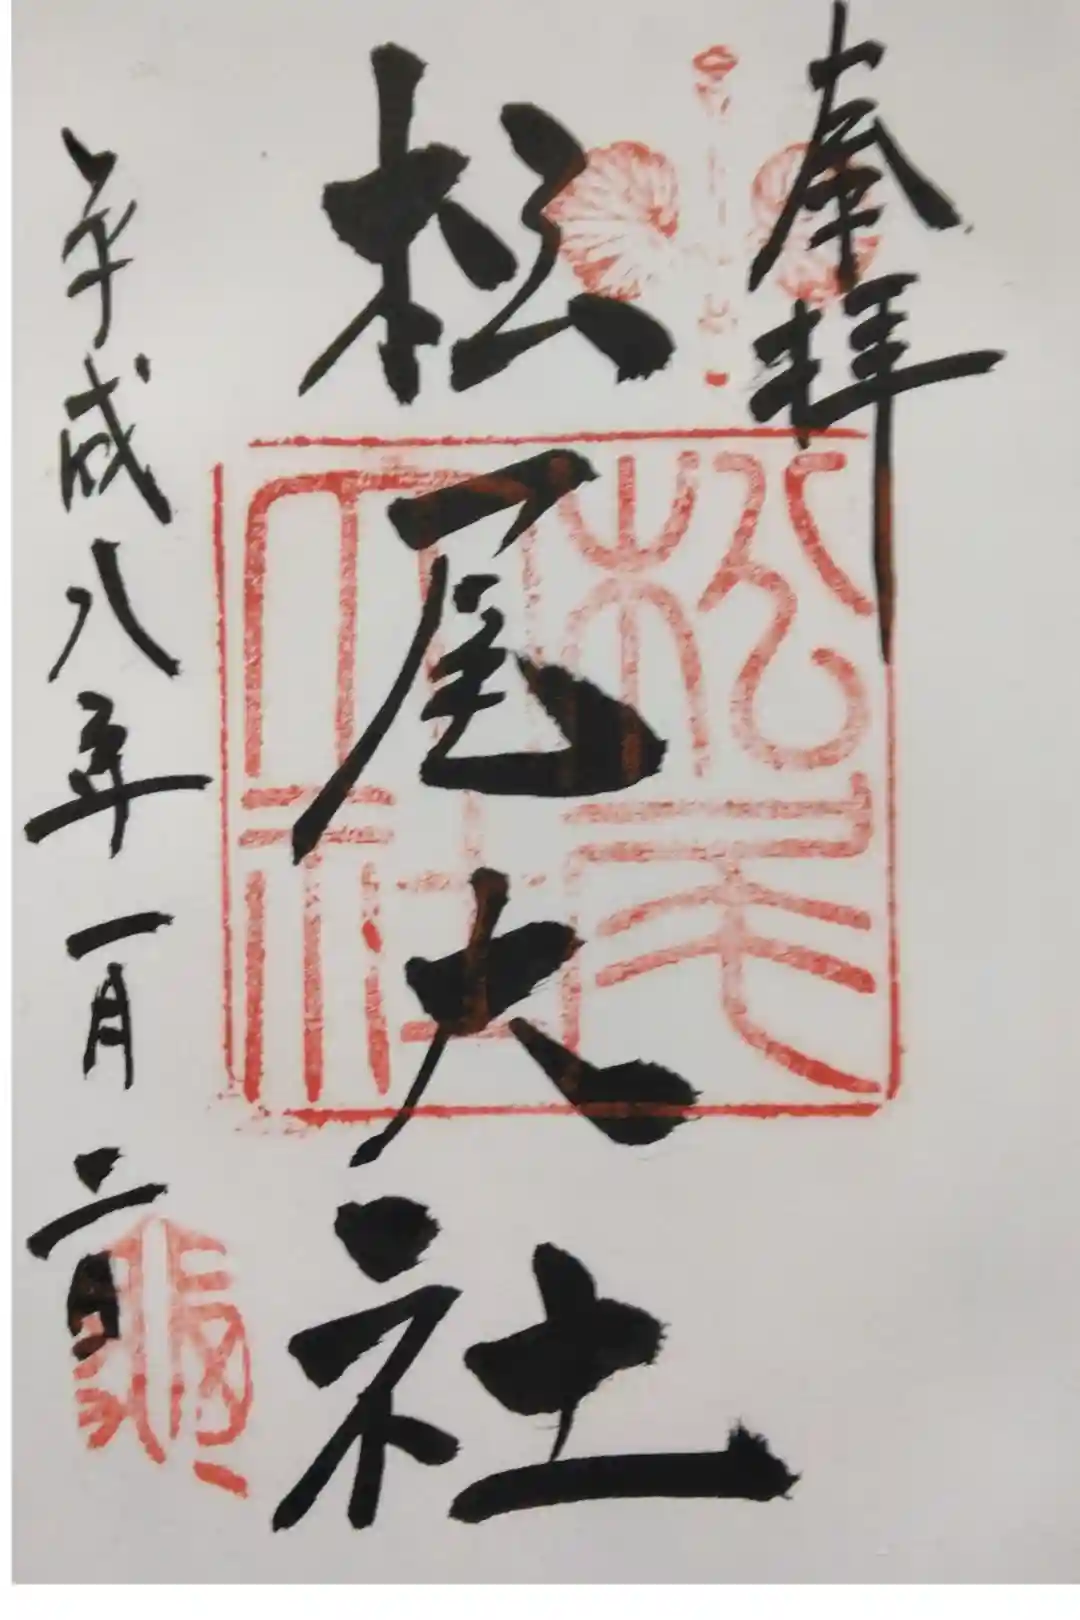 奉拝
松尾大社
平成八年一月二日
松尾
大社